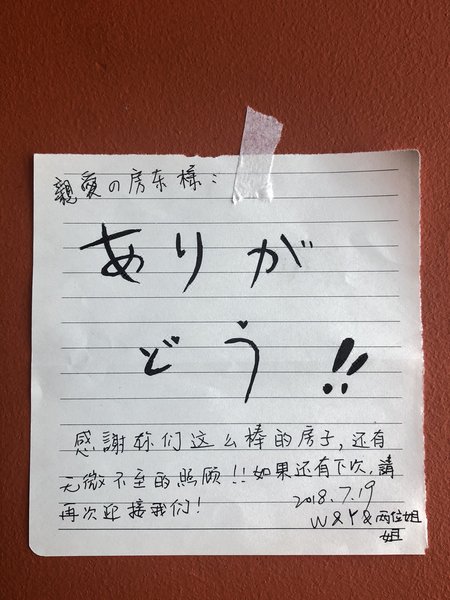 親愛の房东様：
ありが
どう!!
感謝你们这么棒的房子，还有
无微不至的照顾!!如果还有下次，請
再次迎接我们！
2018.7.19
W&Y&两位姐
姐